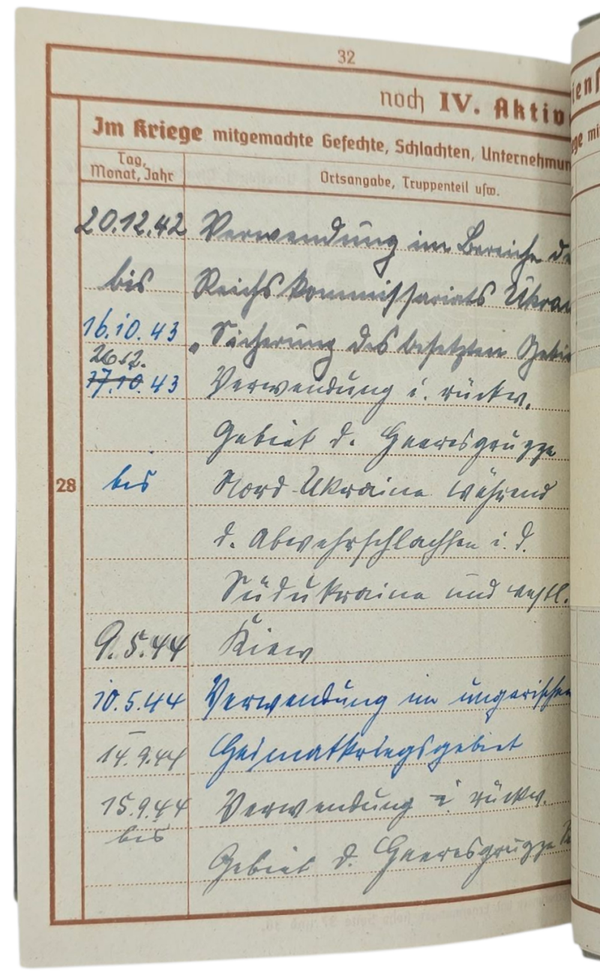 32
noch IV. Aktiv
Im Kriege mitgemachte Gefechte, Schlachten, Unternehmun
Tag, Monat, Jahr
Ortsangabe, Truppenteil usw.
20.12.42 Verwendung im Bereiche de
bis Reichskommissariats Ukrai
16.10.43 "Sicherung des besetzten Gebie
26.12.
17.10.43 Verwendung i. rückw.
Gebiet d. Heeresgruppe
28
bis Nord-Ukraine während
d. Abwehrschlachten i. d.
Südukraine und westl.
9.5.44 Kiew
10.5.44 Verwendung im ungarischen
–
14.9.44 Heimatkriegsgebiet
15.9.44 Verwendung i. rückw.
bis
Gebiet d. Heeresgruppe